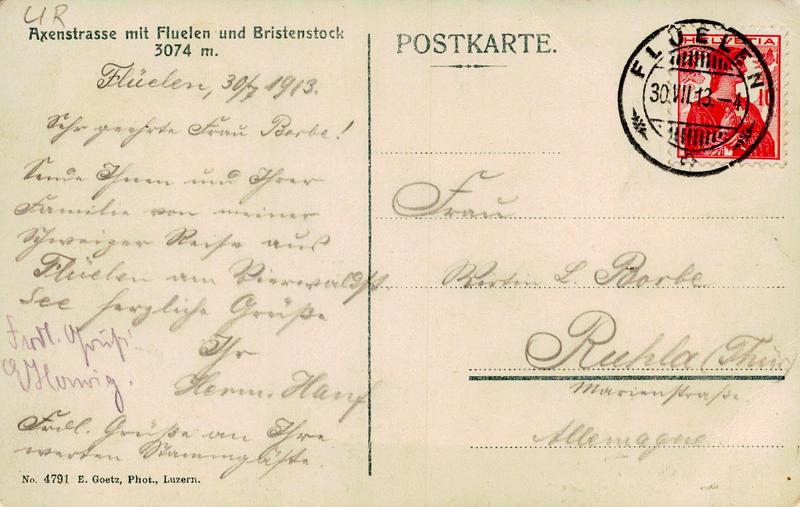 UR
Axenstrasse mit Fluelen und Bristenstock
3074 m.
Flüelen, 30/7 1913.
Sehr geehrte Frau Borbe!
Sende Ihnen und Ihrer
Familie von meiner
Schweizer Reise aus
Flüelen am Vierwaldst
See herzliche Grüße
Ihr
Herm. Hanf
Frdl. Gruß
Frdl. Grüße an Ihre
werten Stammgäste.
No. 4791 E. Goetz, Phot., Luzern.
POSTKARTE.
FLÜELEN
30.VII.13.-4
HELVETIA
10
Frau
Wirtin L. Borbe
Ruhla (Thür
Marienstraße.
Allemagne